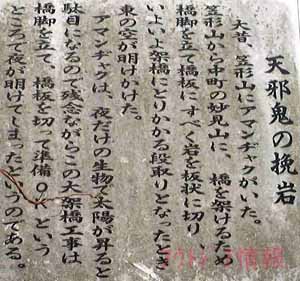 天邪鬼の挽岩
大昔、笠形山にアマンヂャクがいた。
笠形山から中町の妙見山に、橋を架けるため
橋脚を立て橋板にすべく岩を板状に切り、
いよいよ架橋にとりかかる段取りとなったとき
東の空が明けかけた。
アマンヂャクは、夜だけの生物で太陽が昇ると
駄目になるので残念ながらこの大架橋工事は
橋脚を立て、橋板を切って準備OKという
ところで夜が明けてしまったというのである。